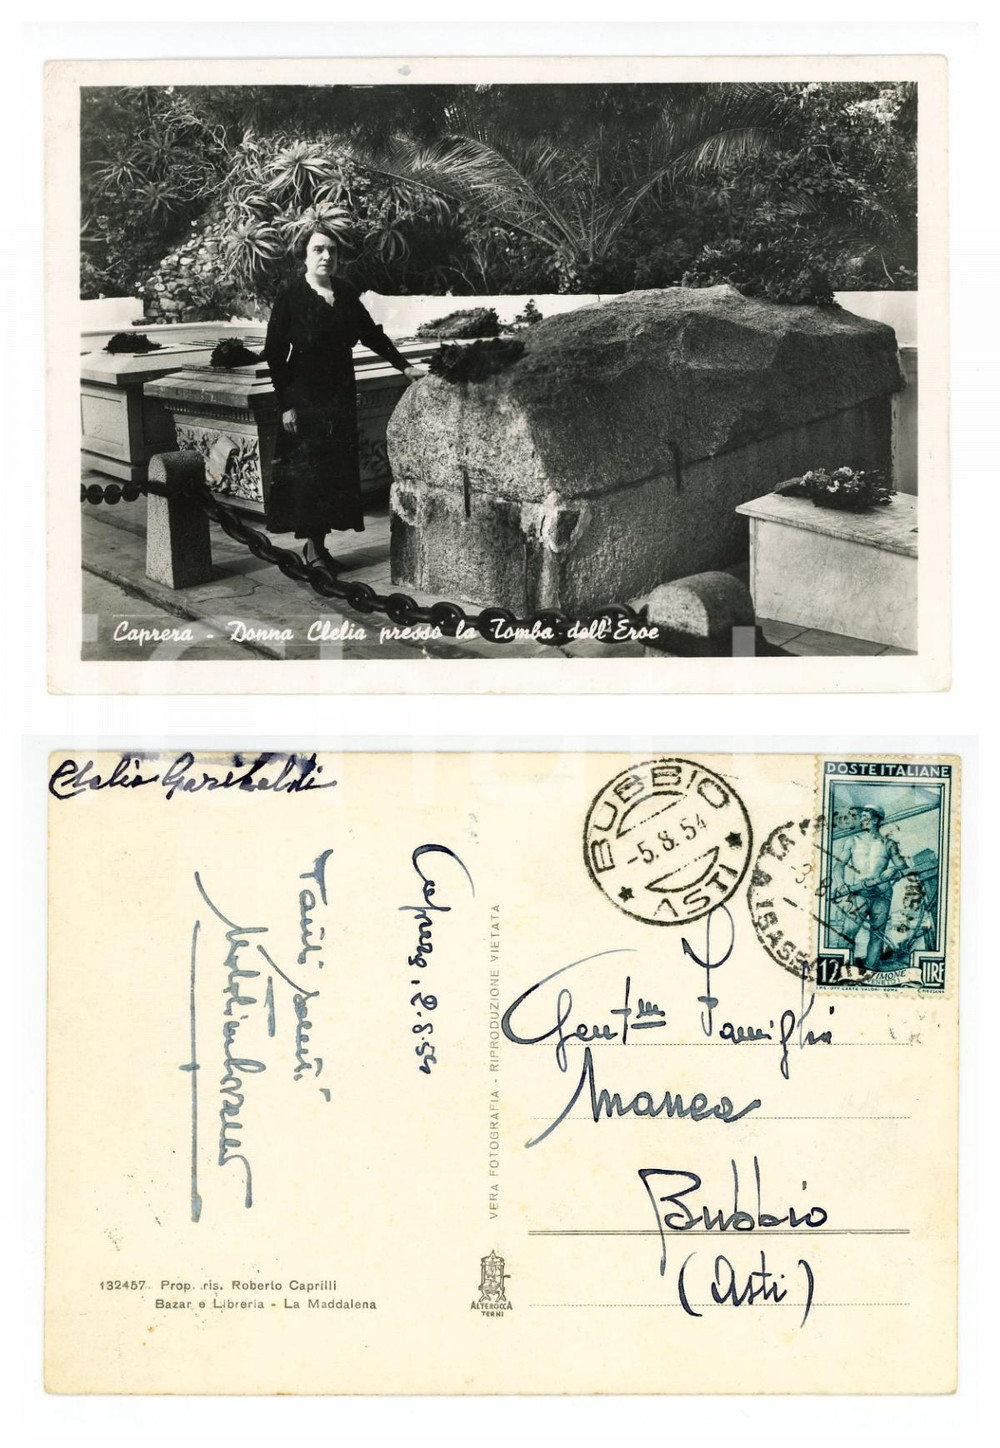 Caprera - Donna Clelia presso la Tomba dell'Eroe
Clelia Garibaldi
Tanti saluti
Caprera, 2.8.54
VERA FOTOGRAFIA - RIPRODUZIONE VIETATA
132457 Prop. ris. Roberto Caprilli
Bazar e Libreria - La Maddalena
ALTEROCCA
TERNI
BUBBIO
-5.8.54
ASTI
POSTE ITALIANE
12 LIRE
TIMONE
Gent.ma Famiglia
Manea
Bubbio
(Asti)